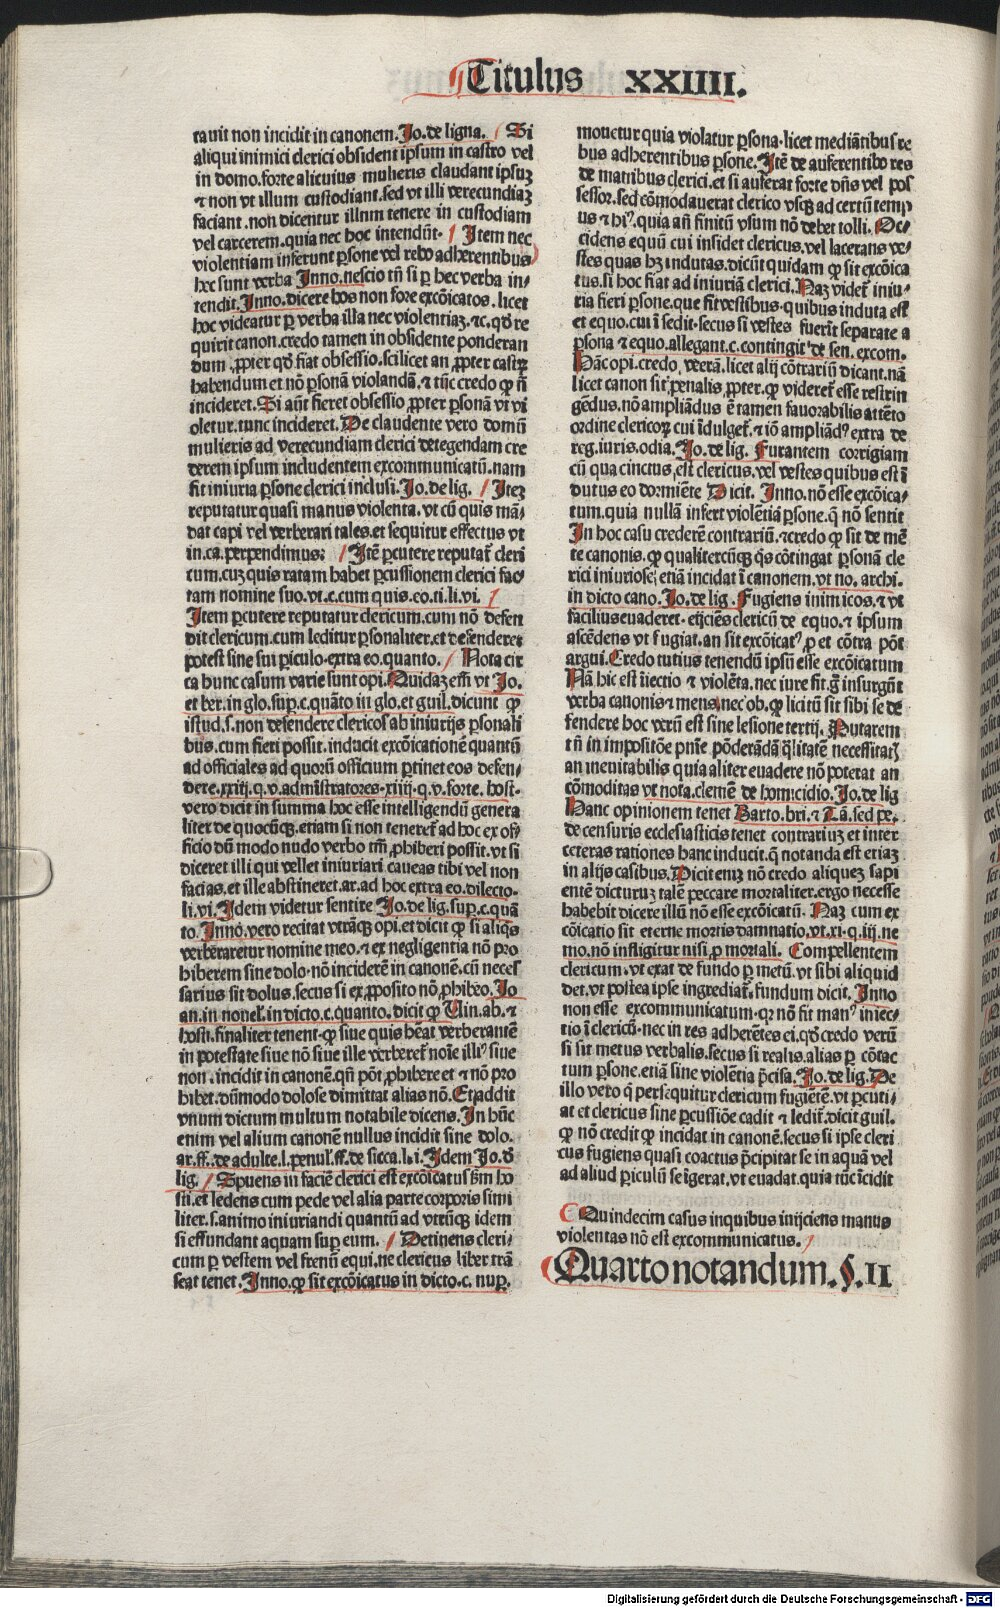 Titulus XXIIII.
tauit non incidit in canonem. Jo. de ligna. Si
aliqui inimici clerici obsident ipsum in castro vel
in domo. forte alicuius mulieris claudant ipsuꝫ
⁊ non vt illum custodiant. sed vt illi verecundiaꝫ
faciant. non dicentur illum tenere in custodiam
vel carcerem. quia nec hoc intendūt. Item nec
violentiam inferunt ꝑsone vel rebꝰ adherentibus
hec sunt verba Inno. nescio tñ si ꝑ hec verba in-
tendit. Inno. dicere hos non fore excōicatos. licet
hoc videatur ꝑ verba illa nec violentiaꝫ. ⁊c. qđ re
quirit canon. credo tamen in obsidente ponderan
dum ꝓpter qđ fiat obsessio. scilicet an ꝓpter castꝝ
habendum et nō ꝑsonā violandā. ⁊ tūc credo ꝙ ñ
incideret. Si aūt fieret obsessio ꝓpter ꝑsonā vt vi
oletur. tunc incideret. De claudente vero domū
mulieris ad verecundiam clerici detegendam cre
derem ipsum includentem excommunicatū. nam
fit iniuria ꝑsone clerici inclusi. Jo. de lig. Iteꝫ
reputatur quasi manus violenta. vt cū quis mā-
dat capi vel verberari tales. et sequitur effectus vt
in. ca. perpendimus: Itē ꝑcutere reputat᷑ cleri
cum. cuꝫ quis ratam habet ꝑcussionem clerici fac
tam nomine suo. vt. c. cum quis. eo. ti. li. vi.
Item ꝑcutere reputatur clericum. cum nō defen
dit clericum. cum leditur ꝑsonaliter. et defenderet
potest sine sui ꝑiculo. extra eo. quanto. Nota cir
ca hunc casum varie sunt opi. Quidaꝫ em̄ vt Jo.
et ber. in glo. suꝑ. c. quāto in glo. et guil. dicunt ꝙ
istud. s. non defendere clericos ab iniurijs ꝑsonali
bus. cum fieri possit. inducit excōicationē quantū
ad officiales ad quorū officium ꝑtinet eos defen-
dere. xxiij. q. v. administratores. xiiij. q. v. forte. host.
vero dicit in summa hoc esse intelligendū genera
liter de quocūꝗ. etiam si non teneret᷑ ad hoc ex of-
ficio dū modo nudo verbo tm̄ ꝓhiberi possit. vt si
diceret illi qui vellet iniuriari caueas tibi vel non
facias. et ille abstineret. ar. ad hoc extra eo. dilecto.
li. vi. Idem videtur sentire Jo. de lig. suꝑ. c. quā
to. Inno. vero recitat vtrāꝗ opi. et dicit ꝙ si aliꝗs
verberaretur nomine meo. ⁊ ex negligentia nō pro
hiberem sine dolo. nō inciderē in canonē. cū neces
sarius sit dolus. secus si ex ꝓposito nō ꝓhibeo. Jo
an. in nouel. in dicto. c. quanto. dicit ꝙ Vin. ab. ⁊
hosti. finaliter tenent. ꝙ siue quis hēat verberantē
in potestate siue nō siue ille verberet᷑ noīe illiꝰ siue
non. incidit in canonē. qn̄ pōt ꝓhibere et ⁊ nō pro
hibet. dūmodo dolose dimittat alias nō. Et addit
vnum dictum multum notabile dicens. In hūc
enim vel alium canonē nullus incidit sine dolo.
ar. ff. de adulte. l. penul. ff. de sicca. l. i. Idem Jo. đ
lig. Spuens in faciē clerici est excōicatus sm̄ ho
sti. et ledens cum pede vel alia parte corporis simi
liter. s. animo iniuriandi quantū ad vtrūꝗ idem
si effundant aquam suꝑ eum. Detinens cleri-
cum ꝑ vestem vel frenū equi. ne clericus liber trā
seat tenet. Inno. ꝙ sit excōicatus in dicto. c. nuꝑ.
mouetur quia violatur ꝑsona. licet mediātibus re
bus adherentibus ꝑsone. Itē de auferentibꝰ res
de manibus clerici. et si auferat forte dn̄s vel pos
sessor. sed cōmodauerat clerico vsꝗ ad certū temp
us ⁊ hiꝰ. quia añ finitū vsum nō debet tolli. Oc-
cidens equū cui insidet clericus. vel lacerans ve-
stes quas hꝫ indutas. dicūt quidam ꝙ sit excōica
tus. si hoc fiat ad iniuriā clerici. Naꝫ videt᷑ iniu-
ria fieri ꝑsone. que fit vestibus. quibus induta est
et equo. cui īsedit. secus si vestes fuerīt separate a
ꝑsona ⁊ equo. allegant. c. contingit de sen. excom.
Hāc opi. credo veerā. licet alij cōtrariū dicant. nā
licet canon sit penalis ꝓpter. ꝙ videret᷑ esse restrin
gēdus. nō ampliādus ē tamen fauorabilis attēto
ordine clericoꝝ cui īdulget᷑. ⁊ iō ampliādꝰ extra de
reg. iuris. odia. Jo. de lig. Furantem corrigiam
cū qua cinctus est clericus. vel vestes quibus est ī
dutus eo dormiēte Dicit. Inno. nō esse excōica-
tum. quia nullā infert violētiā ꝑsone. ꝗ nō sentit
In hoc casu crederē contrariū. ⁊ credo ꝙ sit de mē
te canonis. ꝙ qualitercūꝗ ꝗs cōtingat ꝑsonā cle
rici iniuriose; etiā incidat ī canonem. vt no. archi.
in dicto cano. Jo. de lig. Fugiens inimicos. ⁊ vt
facilius euaderet. eijciēs clericū de equo. ⁊ ipsum
ascēdens vt fugiat. an sit excōicatꝰ ꝓ et cōtra pōt
argui. Credo tutius tenendū ipsū esse excōicatum
Nā hic est īiectio ⁊ violēta. nec iure fit. ḡ insurgūt
verba canonis ⁊ mens. nec ob. ꝙ licitū sit sibi se de
fendere hoc verū est sine lesione tertij. Putarem
tñ in impositōe pn̄ie pōderādā ꝗlitatē necessitatꝭ
an ineuitabilis quia aliter euadere nō poterat an
cōmoditas vt nota. clemē. de homicidio. Jo. de lig
Hanc opinionem tenet Barto. bri. ⁊ La. sed pe.
de censuris ecclesiasticis tenet contrariuꝫ et inter
ceteras rationes hanc inducit. ꝗ notanda est etiaꝫ
in alijs casibus. Dicit enuꝫ nō credo aliqueꝫ sapi
entē dicturuꝫ talē peccare mortaliter. ergo necesse
habebit dicere illū nō esse excōicatū. Naꝫ cum ex
cōicatio sit eterne mortis damnatio. vt. xi. q. iij. ne
mo. nō infligitur nisi ꝓ mortali. Compellentem
clericum. vt exat de fundo ꝑ metū. vt sibi aliquid
det. vt postea ipse ingrediat᷑. fundum dicit. Inno
non esse excommunicatum. qꝛ nō fit manꝰ iniec-
tio ī clericū. nec in res adherētes ei. qđ credo verū
si sit metus verbalis. secus si realis. alias ꝑ cōtac
tum ꝑsone. etiā sine violētia p̄cisa. Jo. de lig. De
illo vero ꝗ persequitur clericum fugiētē. vt ꝑcuti-
at et clericus sine ꝑcussiōe cadit ⁊ ledit᷑. dicit guil.
ꝙ nō credit ꝙ incidat in canonē. secus si ipse cleri
cus fugiens quasi coactus p̄cipitat se in aquā vel
ad aliud ꝑiculū se īgerat. vt euadat. quia tūc īcidit
Quindecim casus inquibus inijciens manus
violentas nō est excommunicatus.
Quarto notandum. §. II
Digitalisierung gefördert durch die Deutsche Forschungsgemeinschaft - DFG